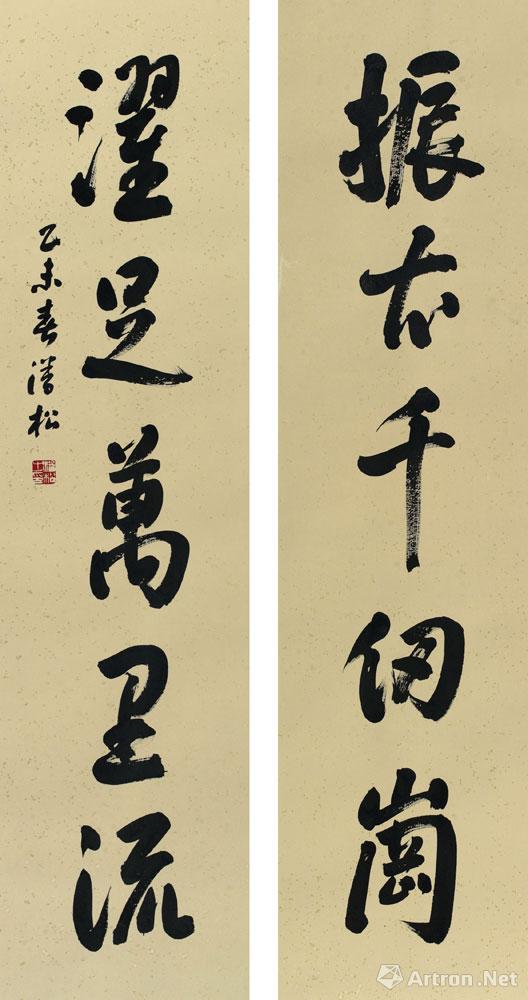 振衣千仞崗
濯足萬里流
乙未春松
Artron.Net